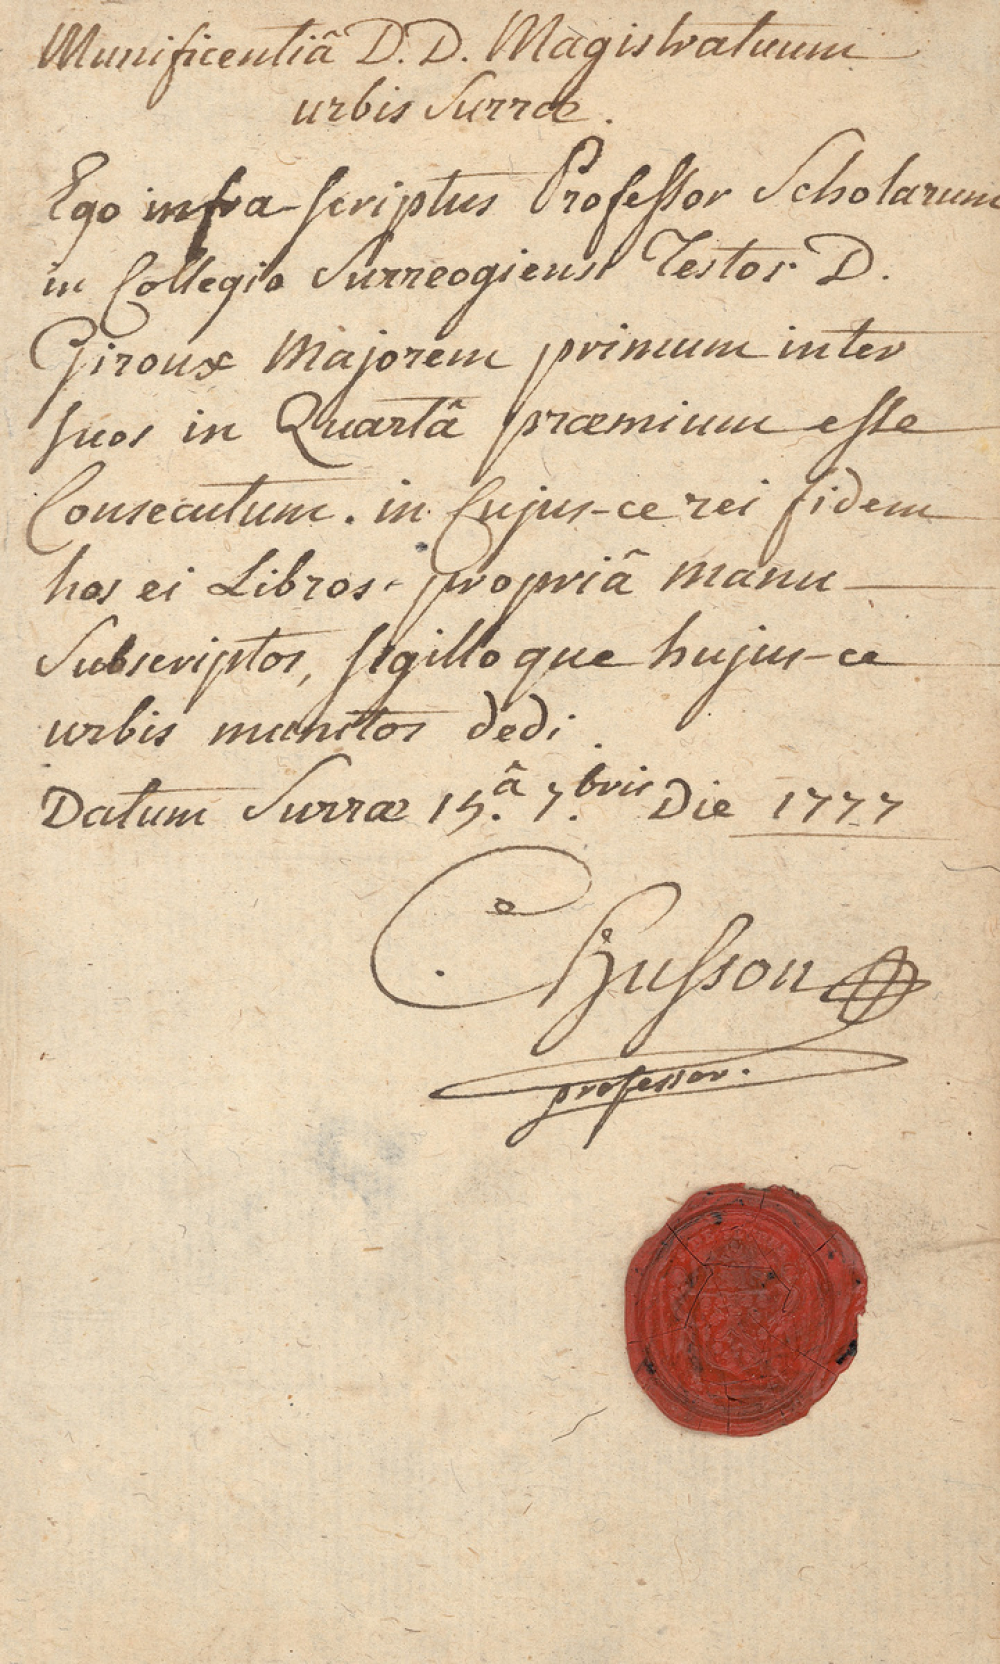 Munificentiâ D. D. Magistratuum
urbis Surræ.
Ego infra-scriptus Professor Scholarum
in Collegio Surreogiensi Testor D.
Giroux Majorem primum inter
suos in Quartâ præmium esse
Consecutum. in Cujus-ce rei fidem
hos ei Libros propriâ manu
Subscriptos, sigilloque hujus-ce
urbis munitos dedi.
Datum Surræ 15.â 7.bris Die 1777
Husson
professor.